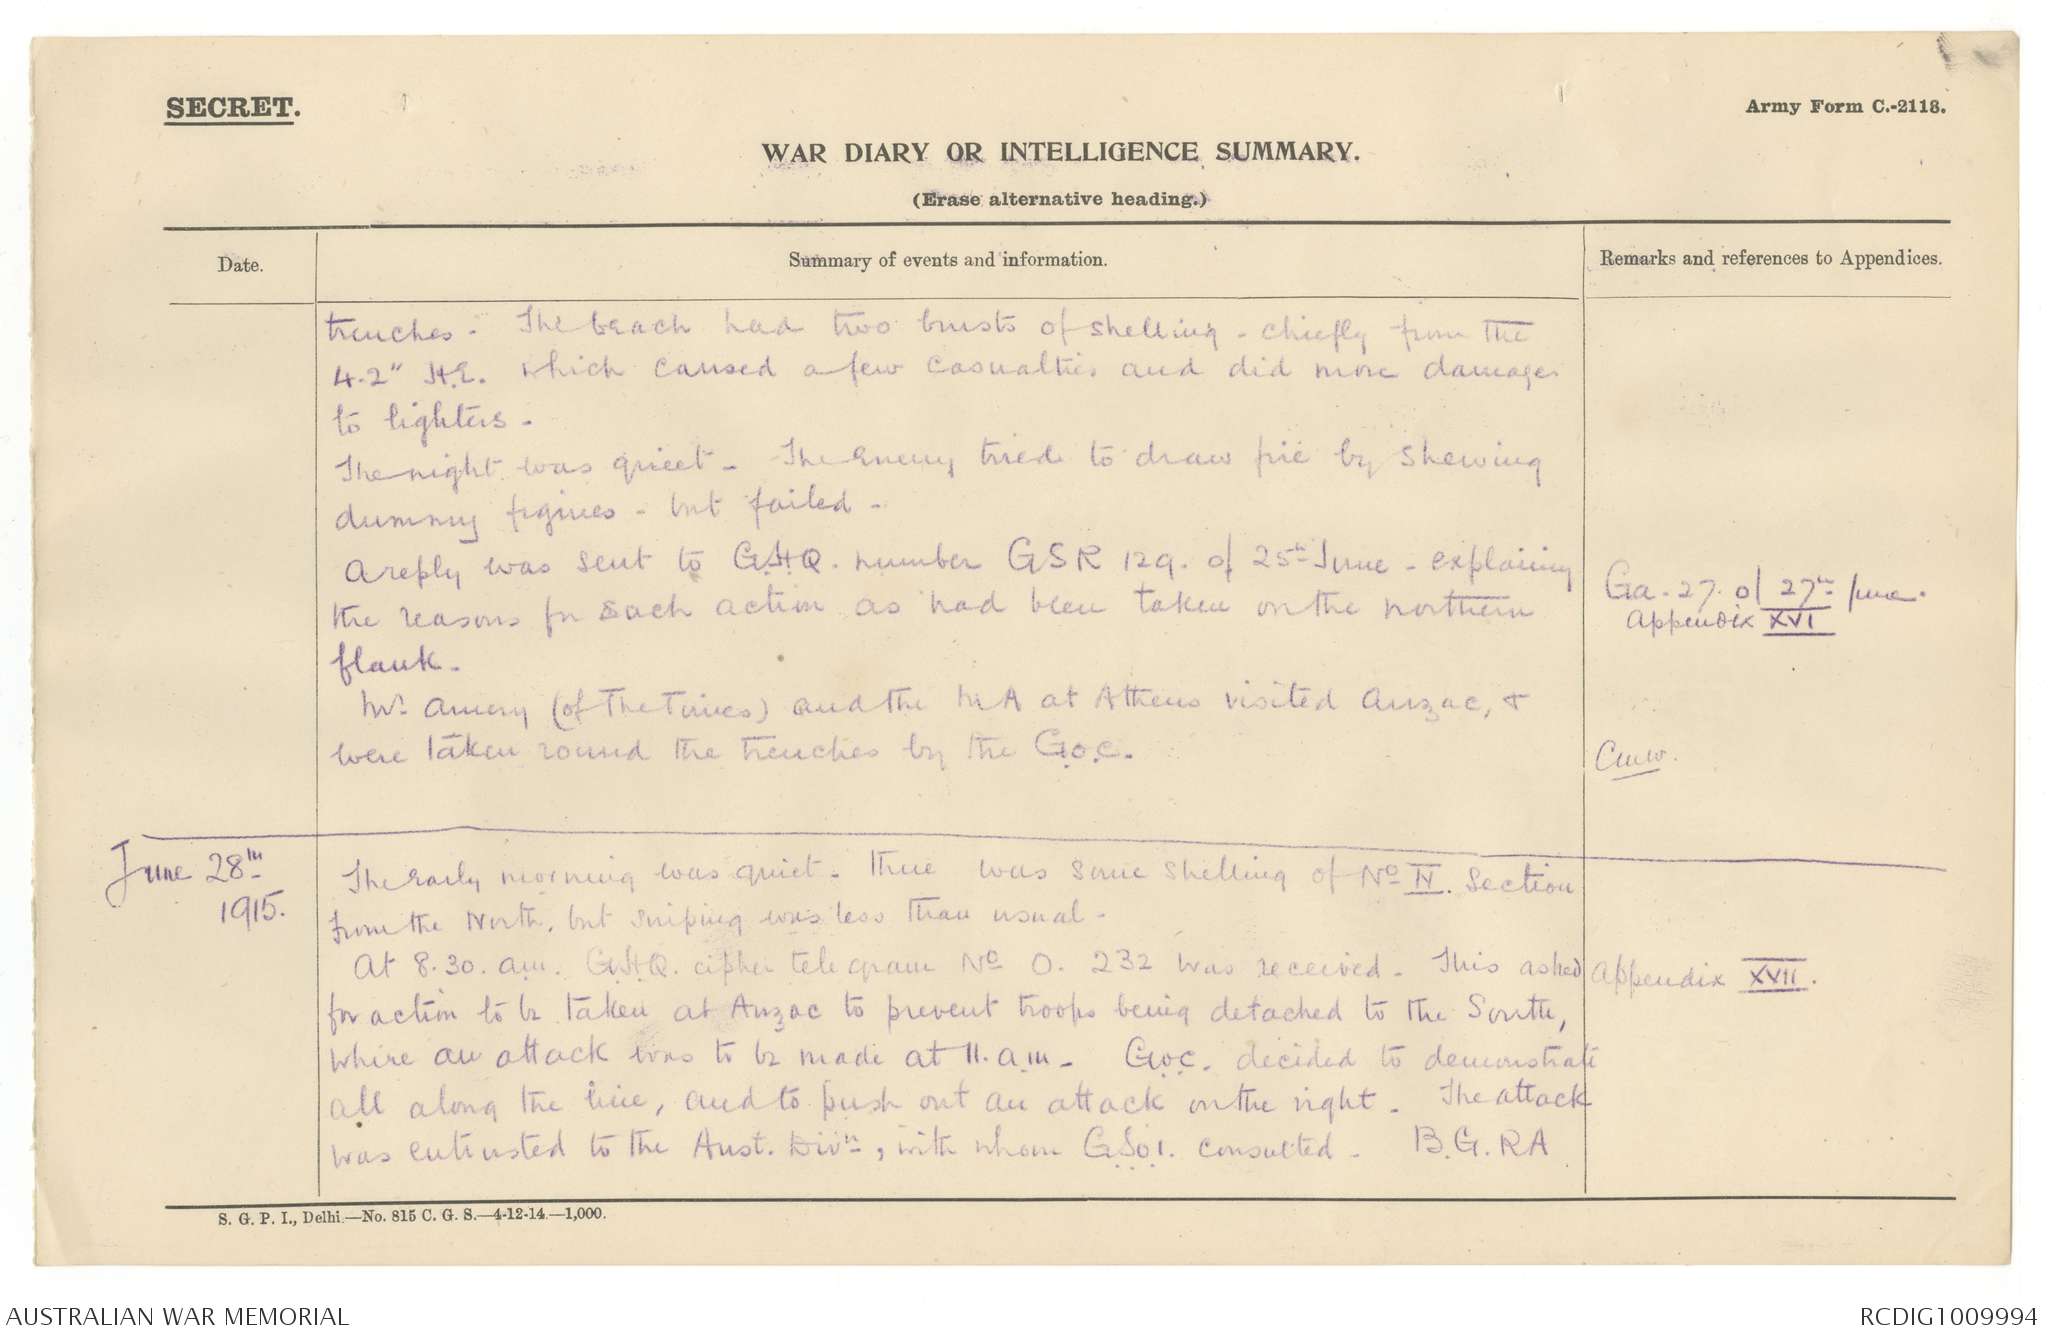 SECRET.
Army Form C.-2118.
WAR DIARY OR INTELLIGENCE SUMMARY.
(Erase alternative heading.)
Date.
Summary of events and information.
Remarks and references to Appendices.
trenches - The beach had two bursts of shelling - chiefly from the
4.2" H.E. which caused a few casualties and did more damage
to lighters -
The night was quiet - The Enemy tried to draw fire by shewing
dummy figures - but failed -
A reply was sent to G.H.Q. number GSR 129. of 25th June - explaining
the reasons for such action as had been taken on the northern
flank -
Ga. 27. of 27th June.
Appendix XVI
Mr. Amery (of The Times) and the MA at Athens visited Anzac, &
were taken round the trenches by the G.O.C.
June 28th
1915.
The early morning was quiet - There was some shelling of No IV. Section
from the North, but sniping was less than usual -
At 8.30. am. G.H.Q. cipher telegram No O. 232 was received - This asked
Appendix XVII.
for action to be taken at Anzac to prevent troops being detached to the South,
where an attack was to be made at 11. am - G.O.C. decided to demonstrate
all along the line, and to push out an attack on the right - The attack
was entrusted to the Aust. Divn, with whom G.S.O.1. consulted - B.G.RA
S. G. P. I., Delhi.—No. 815 C. G. S.—4-12-14.—1,000.
AUSTRALIAN WAR MEMORIAL
RCDIG1009994